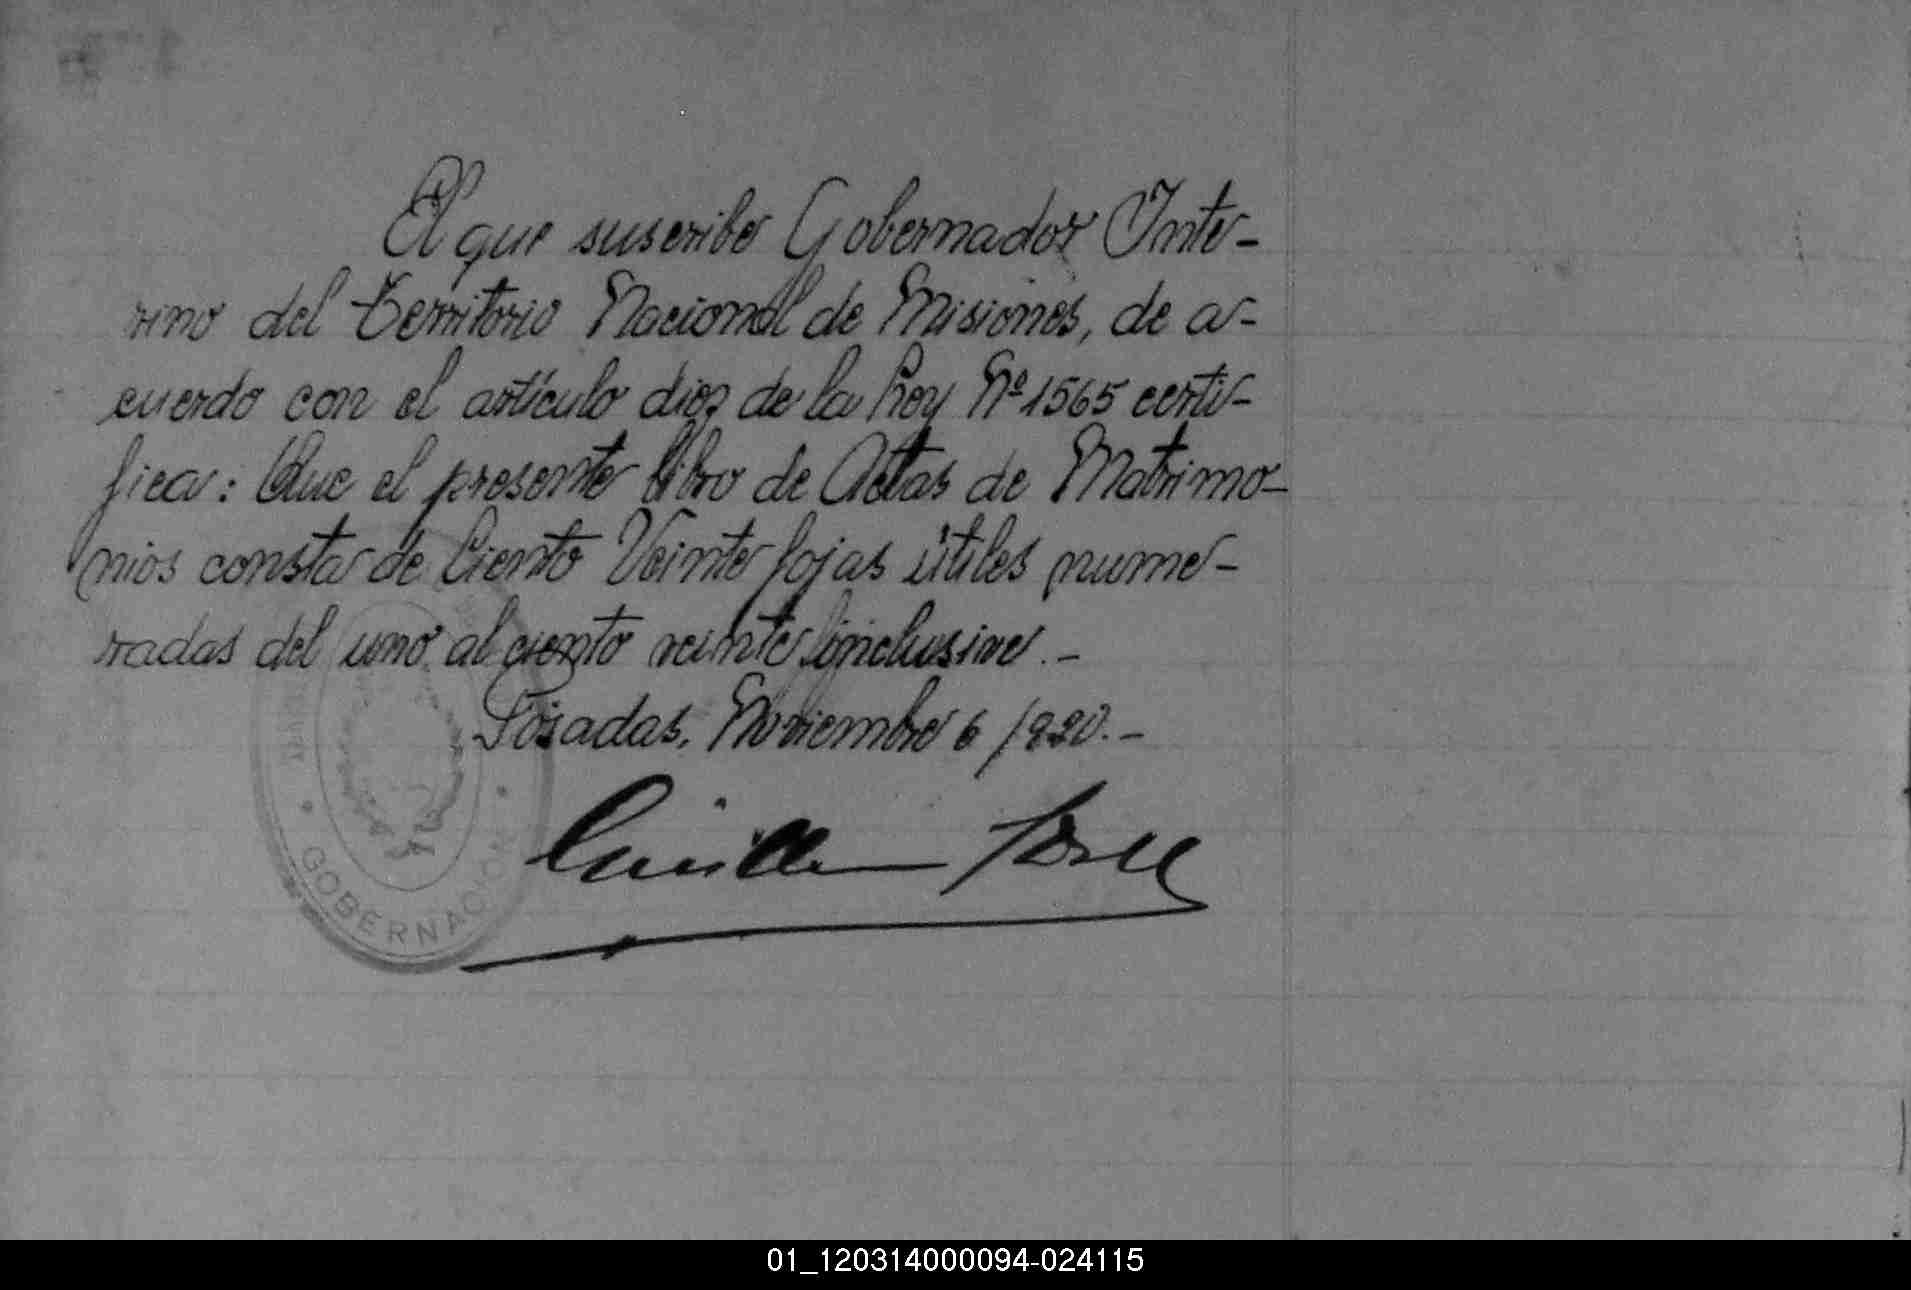 El que suscribe Gobernador Inte-
rino del Territorio Nacional de Misiones, de a-
cuerdo con el artículo diez de la Ley Nº 1565 certi-
fica: Que el presente libro de Actas de Matrimo-
nios consta de Ciento Veinte fojas útiles nume-
radas del uno al ciento veinte inclusive.-
Posadas, Noviembre 6/920.-
GOBERNACION
01_120314000094-024115